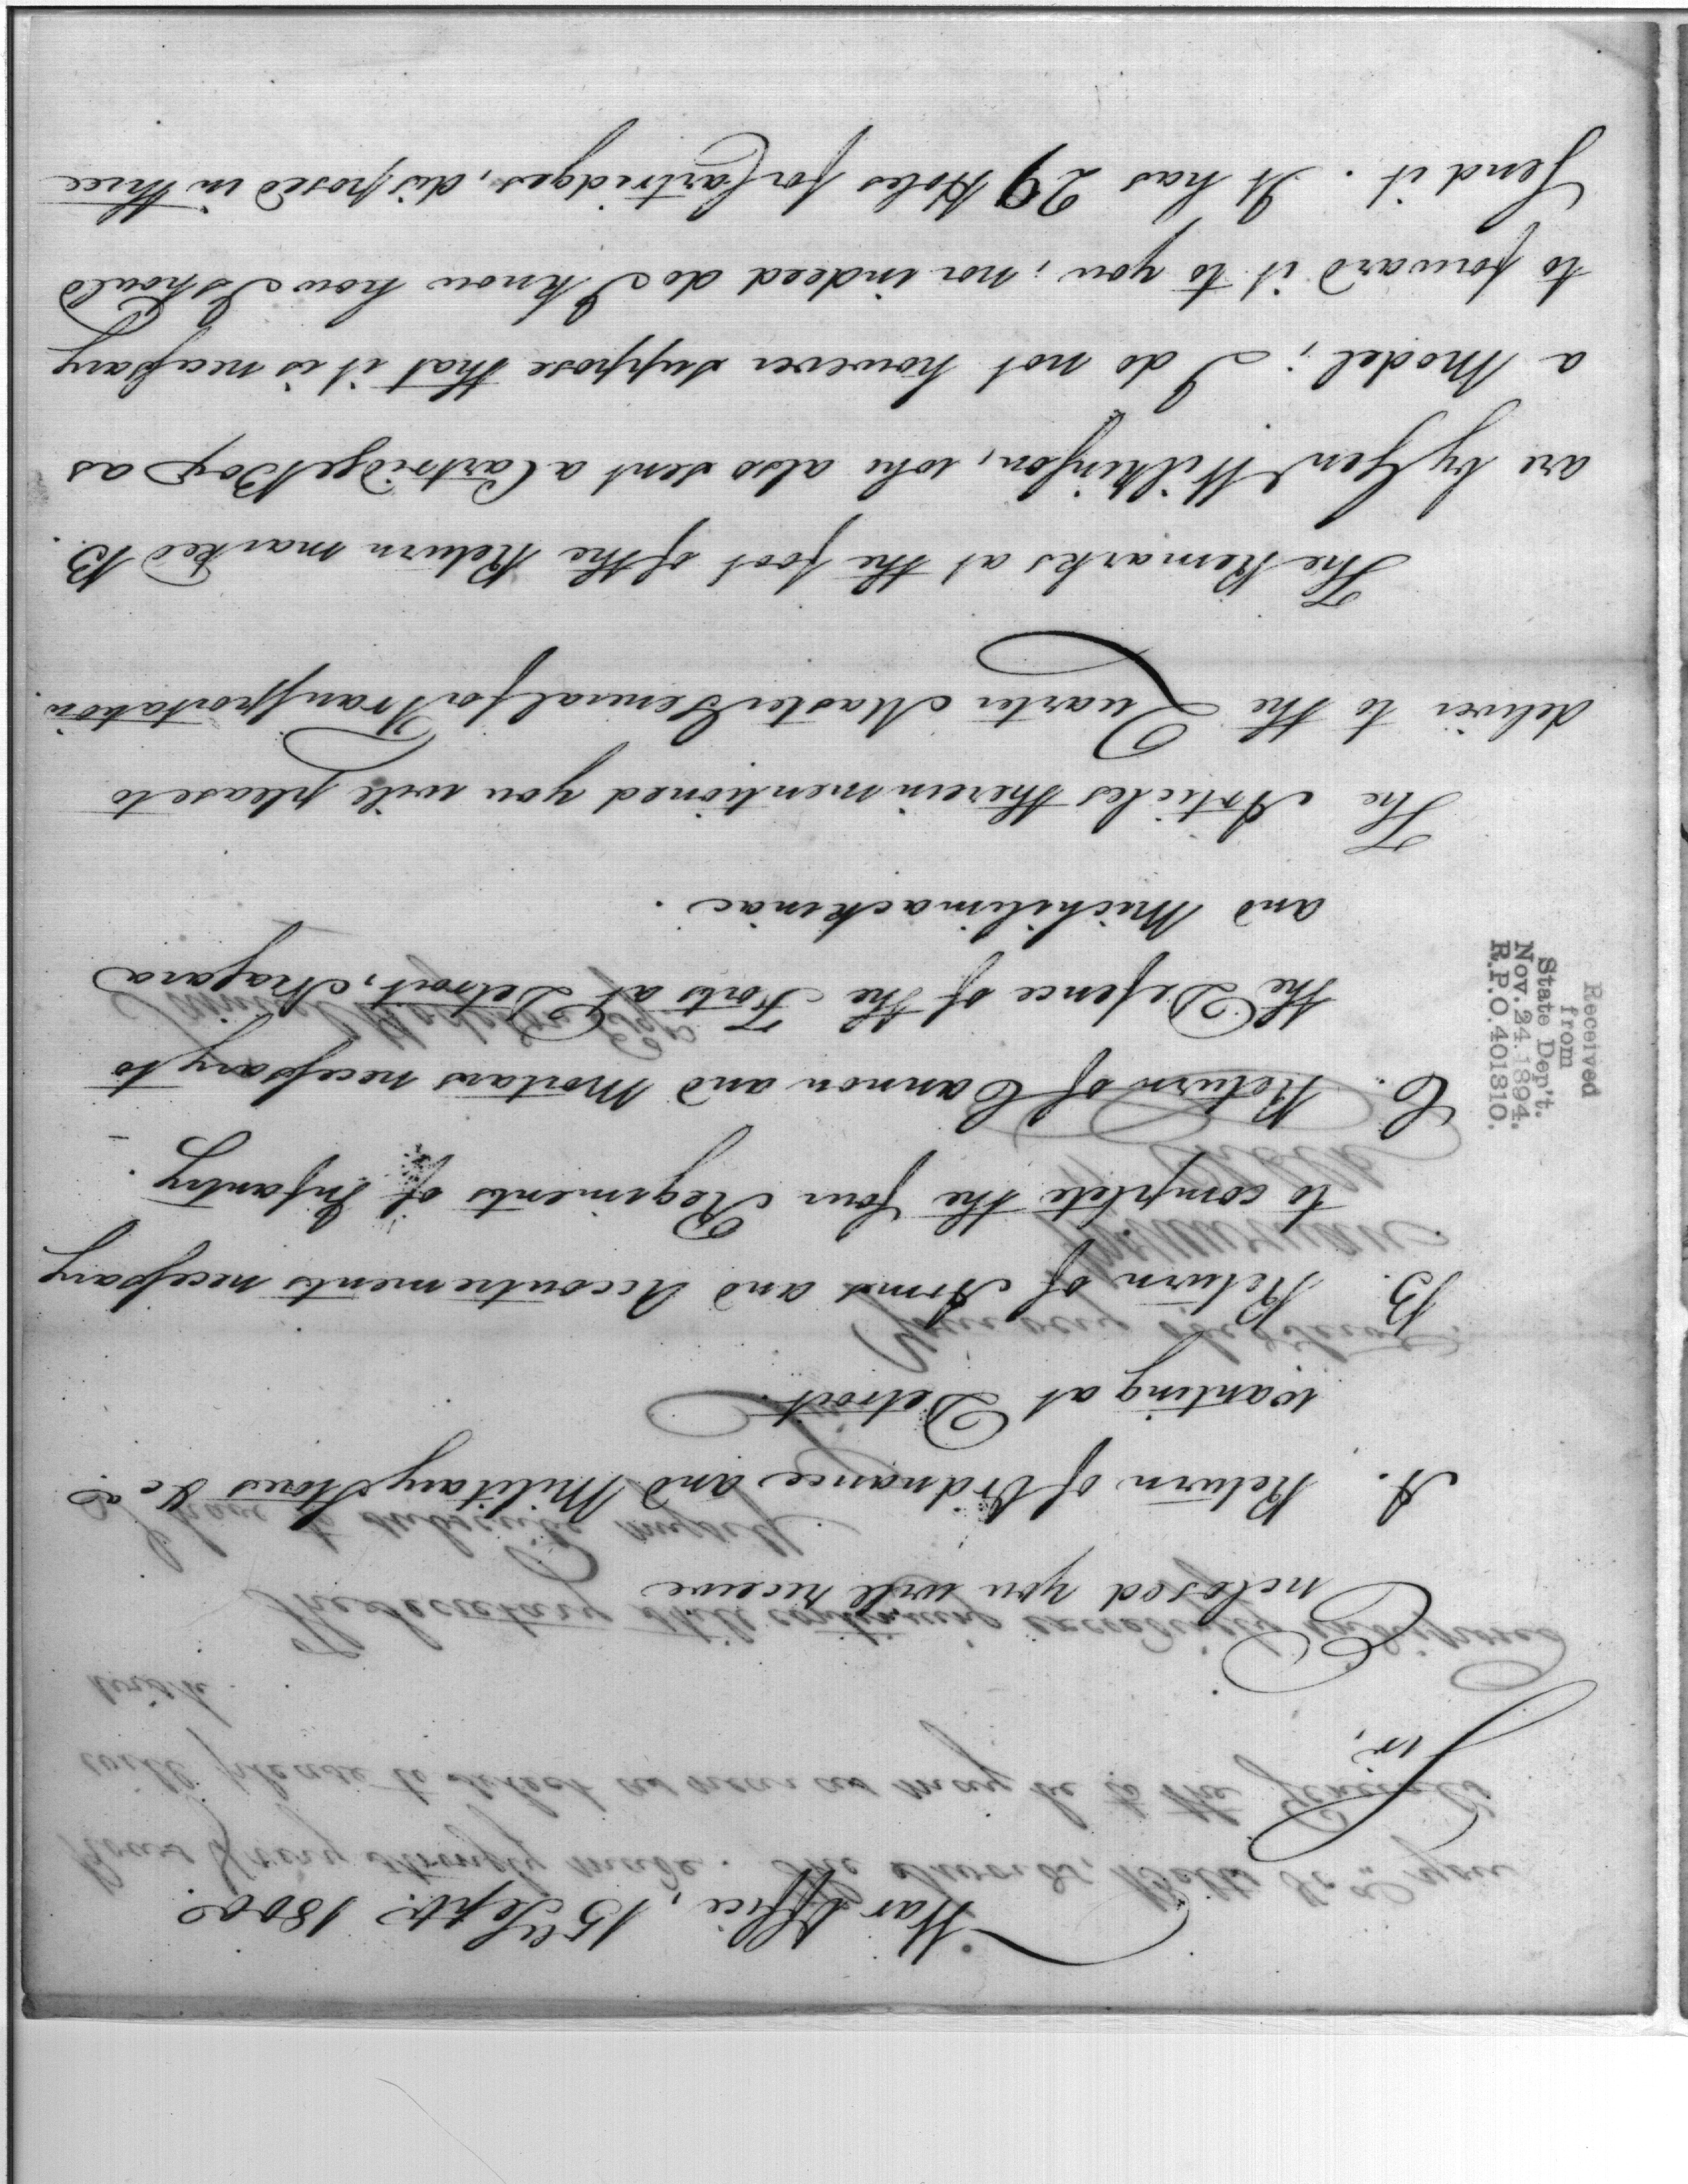 War Office, 15th Septr. 1800.
Sir,
Enclosed you will receive
A. Return of Ordnance and Military Stores &ca
wanting at Detroit.
B. Return of Arms and Accoutrements necessary
to complete the four Regiments of Infantry.
C. Return of Cannon and Mortars necessary to
the Defence of the Forts at Detroit, Niagara
and Michilimackinac.
The Articles therein mentioned you will please to
deliver to the Quarter Master General for Transportation.
The Remarks at the foot of the Return marked B.
are by Genl Wilkinson, who also sent a Cartridge Box as
a Model; I do not however suppose that it is necessary
to forward it to you; nor indeed do I know how I should
send it. It has 29 Holes for Cartridges, disposed in three
Received
from
State Dep't.
Nov. 24. 1894.
R.P.O. 401310.